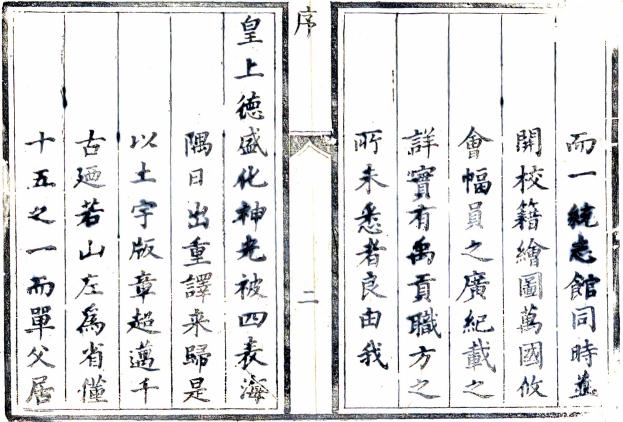 而一統志館同時並
開校籍繪圖萬國攸
會幅員之廣紀載之
詳實有禹貢職方之
所未悉者良由我
序
二
皇上德盛化神光被四表海
隅日出重譯来歸是
以土宇版章超邁千
古廼若山左爲省僅
十五之一而單父居